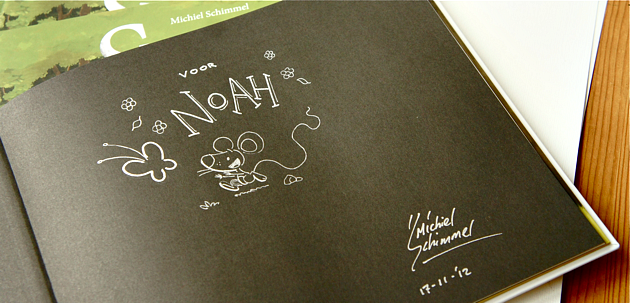 S
Michiel Schimmel
S
VOOR
NOAH
Michiel
Schimmel
17-11-'12